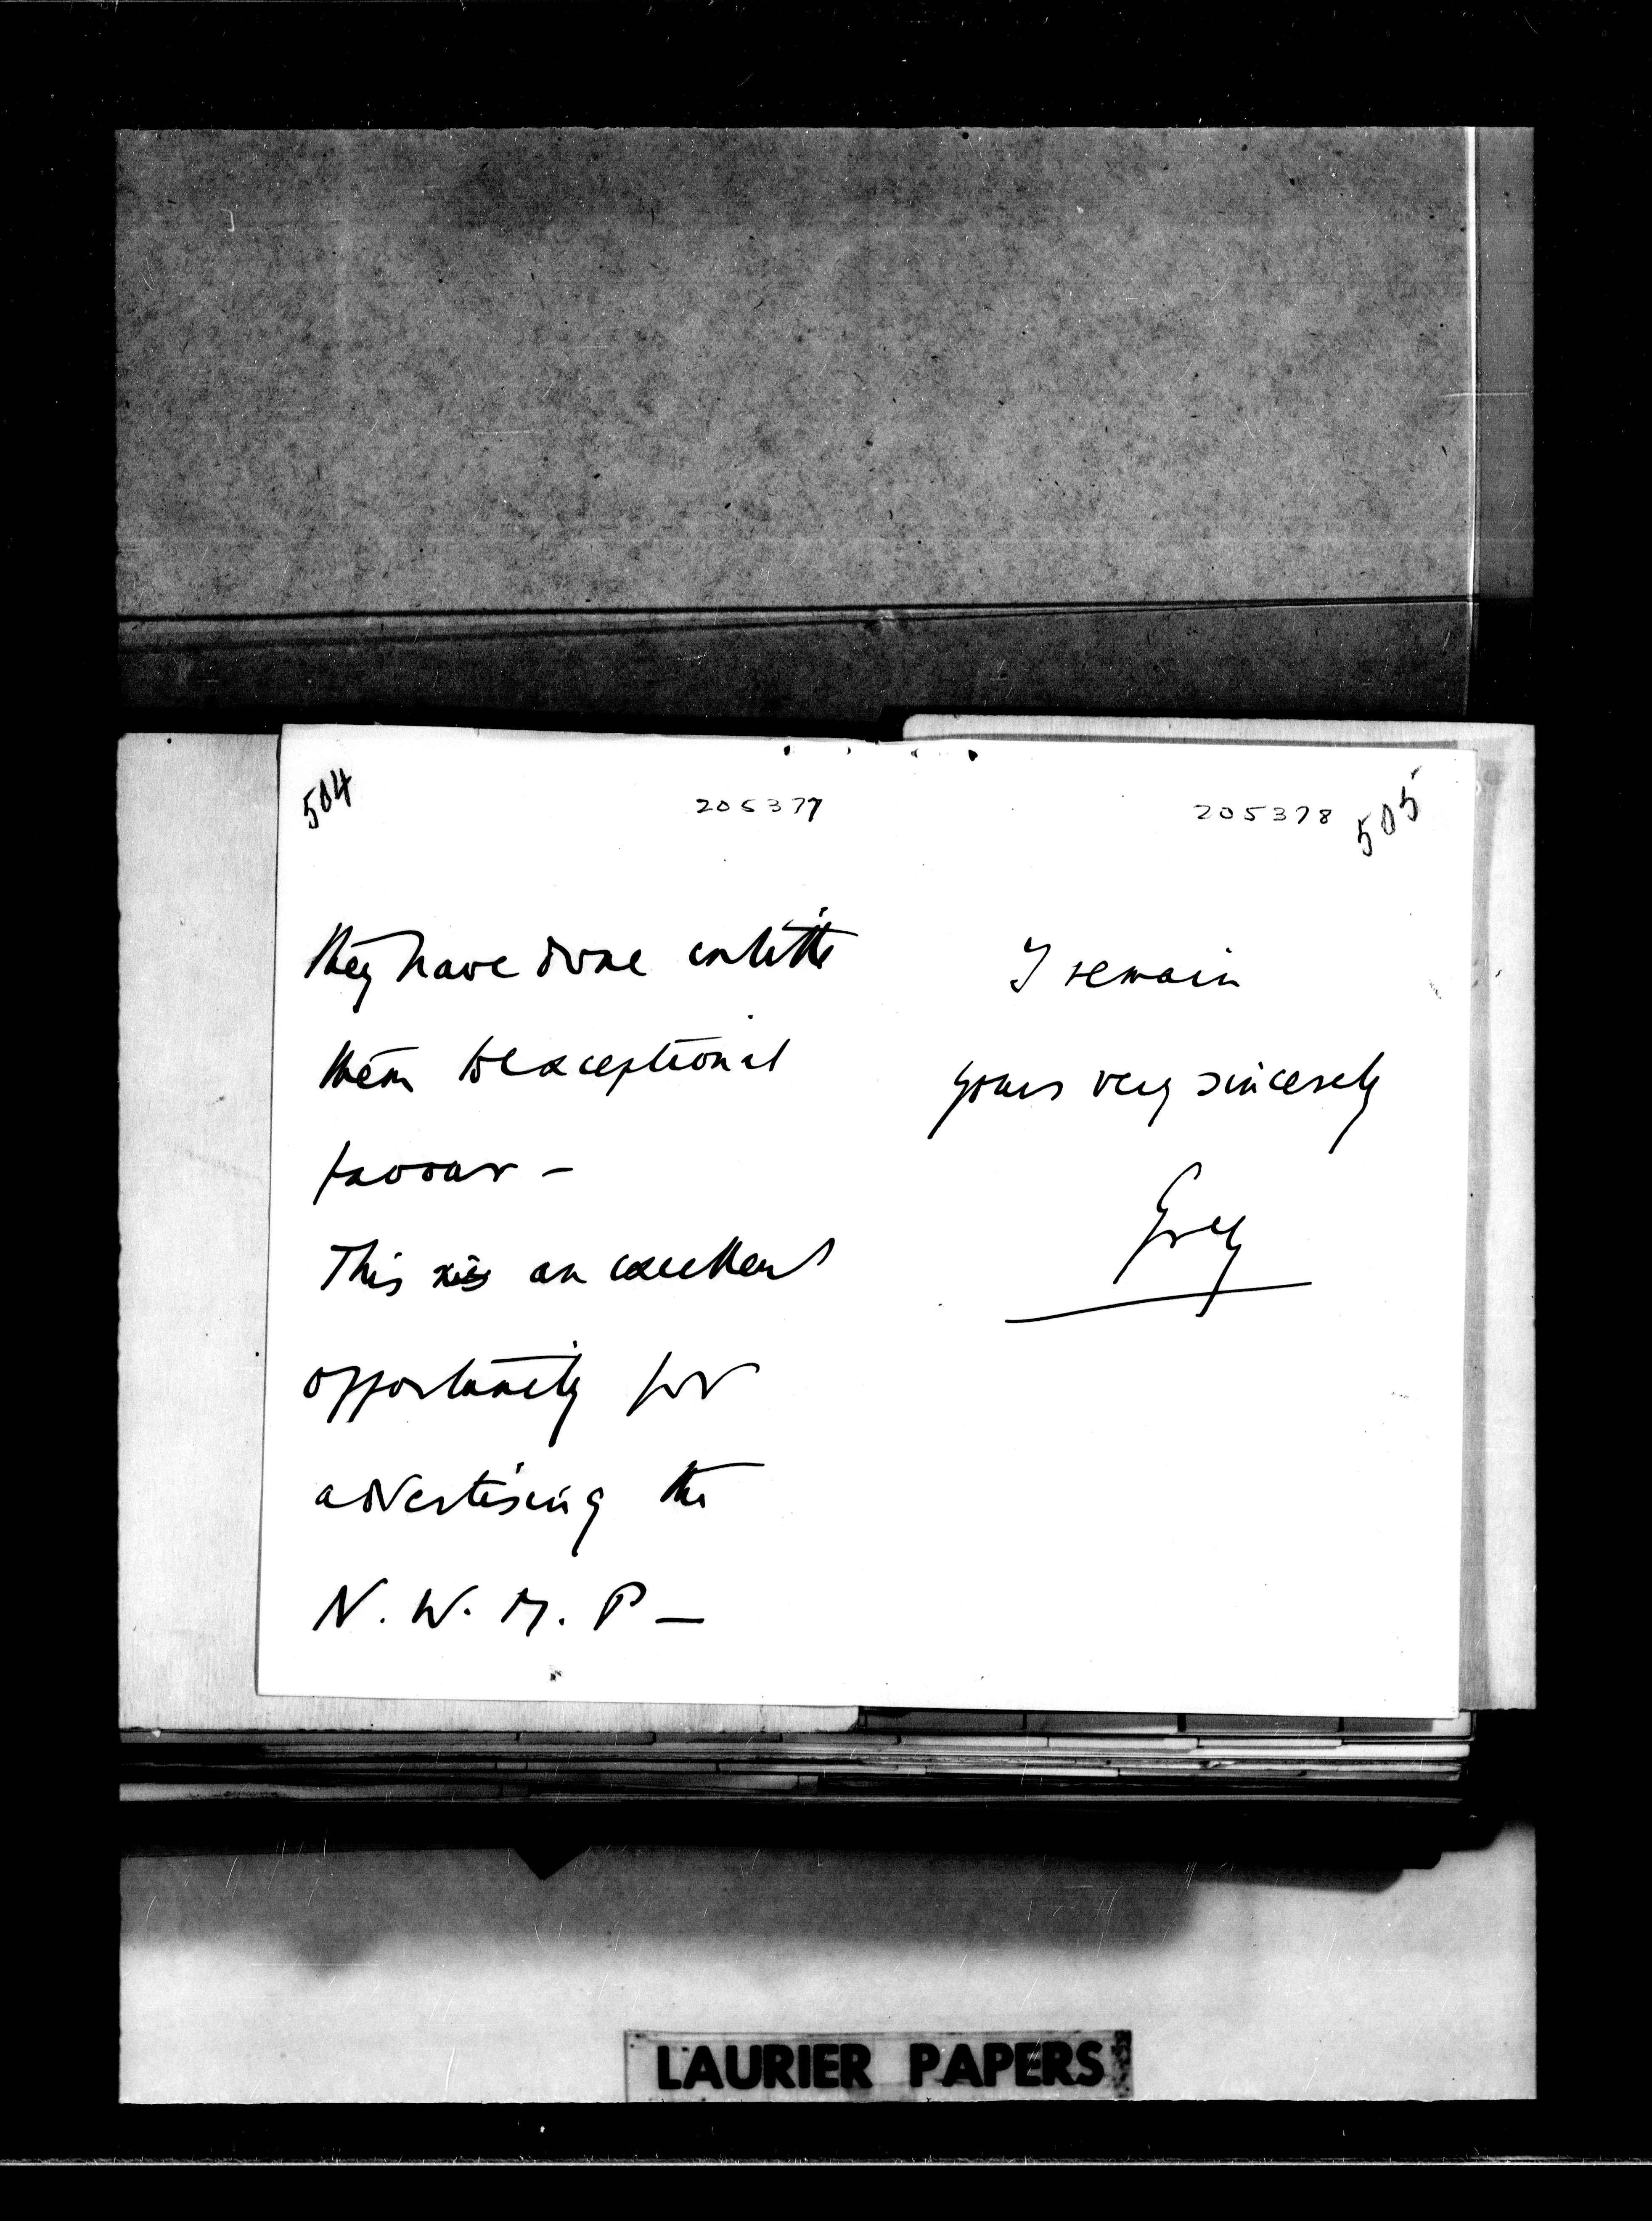 504
205377
they have done entitle
them to exceptional
favour -
This is an excellent
opportunity for
advertising the
N. W. M. P -
205378
505
I remain
yours very sincerely
Grey
LAURIER PAPERS